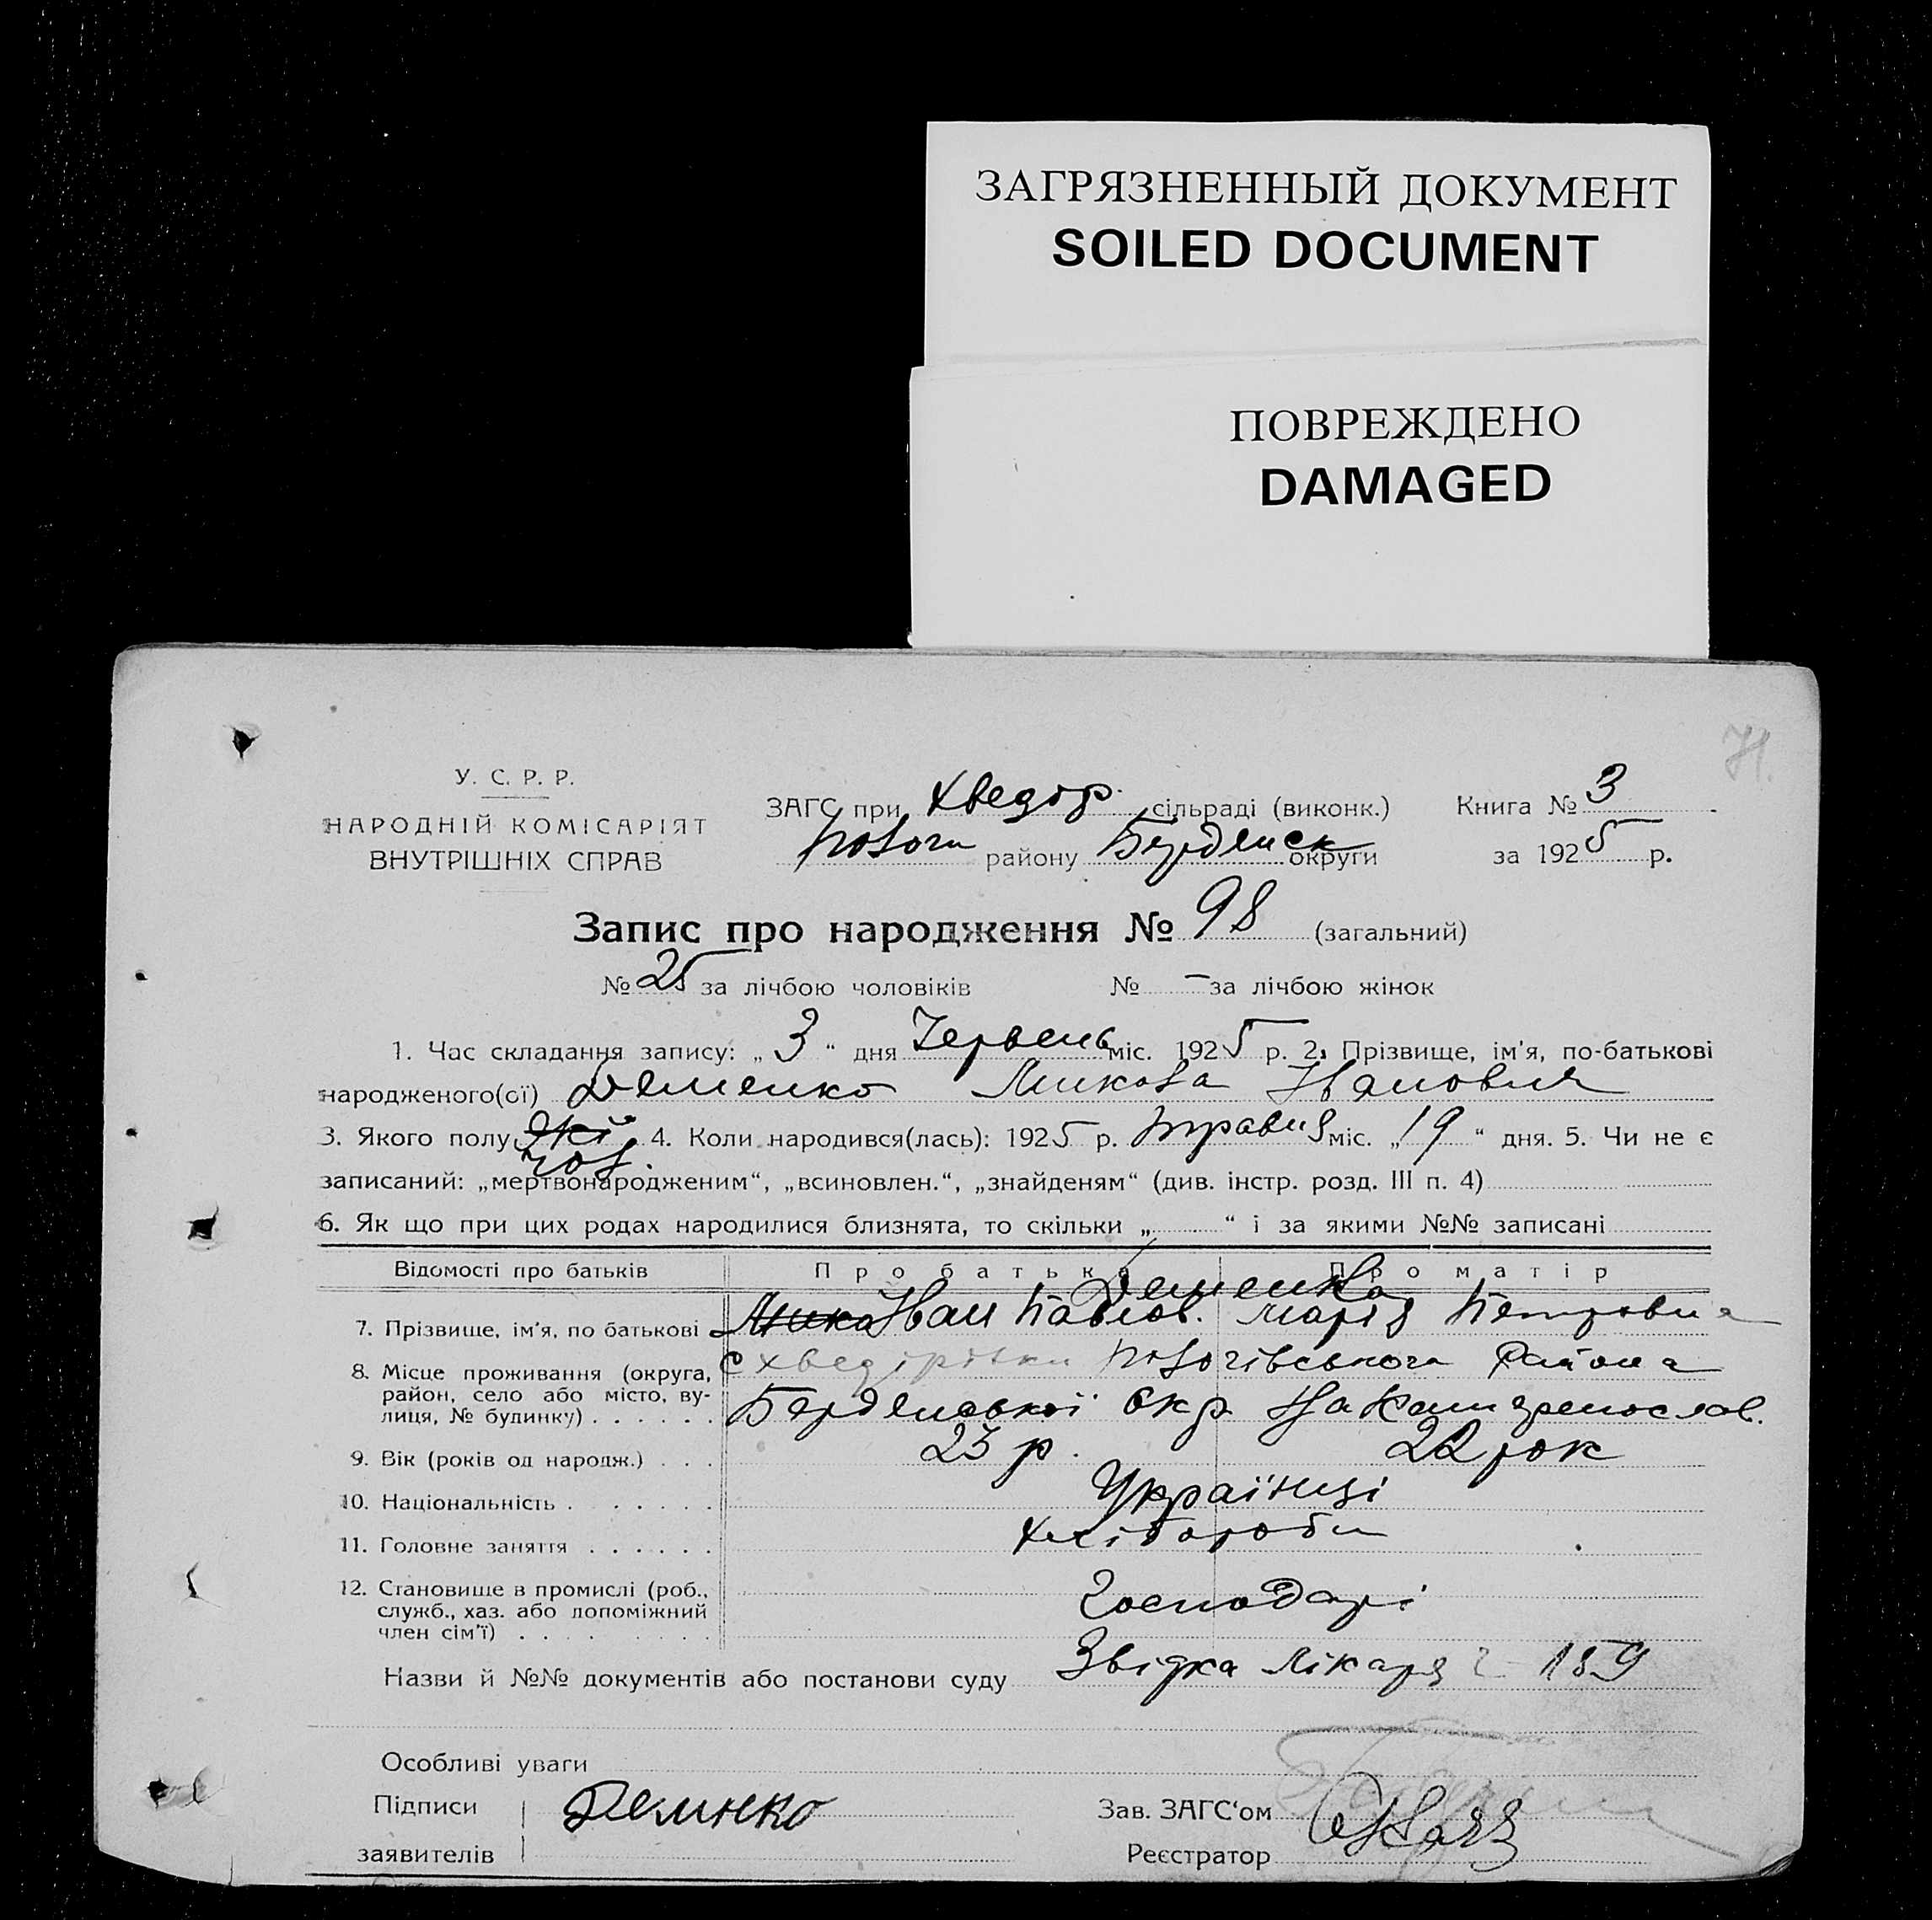 ЗАГРЯЗНЕННЫЙ ДОКУМЕНТ
SOILED DOCUMENT
ПОВРЕЖДЕНО
DAMAGED
71.
У. С. Р. Р.
НАРОДНІЙ КОМІСАРІЯТ
ВНУТРІШНІХ СПРАВ
ЗАГС при Хведор. сільраді (виконк.)
Пологи району Бердянск округи
Книга № 3
за 1925 р.
Запис про народження № 98 (загальний)
№ 25 за лічбою чоловіків № – за лічбою жінок
1. Час складання запису: „ 3 “ дня Червень міс. 1925 р. 2. Прізвище, ім'я, по-батькові
народженого(ої) Деменко Микола Іванович
3. Якого полу чол. 4. Коли народився(лась): 1925 р. травня міс. „19“ дня. 5. Чи не є
записаний: „мертвонародженим“, „всиновлен.“, „знайденям“ (див. інстр. розд. III п. 4)
6. Як що при цих родах народилися близнята, то скільки „ “ і за якими №№ записані
Відомості про батьків Про батька Про матір
Деменко
7. Прізвище, ім'я, по батькові Мико Іван Павлов. Марія Петровна
8. Місце проживання (округа, район, село або місто, вулиця, № будинку) с Хведірівки Пологівського района
Бердянської окр на Катеренослав.
9. Вік (років од народж.) 23 р. 22 рок
10. Національність Українці
11. Головне заняття Хлібороби
12. Становище в промислі (роб., служб., хаз. або допоміжний член сім'ї) Господарі
Назви й №№ документів або постанови суду Звідка лікаря 189
Особливі уваги
Підписи заявителів Деминко
Зав. ЗАГС'ом
Реєстратор